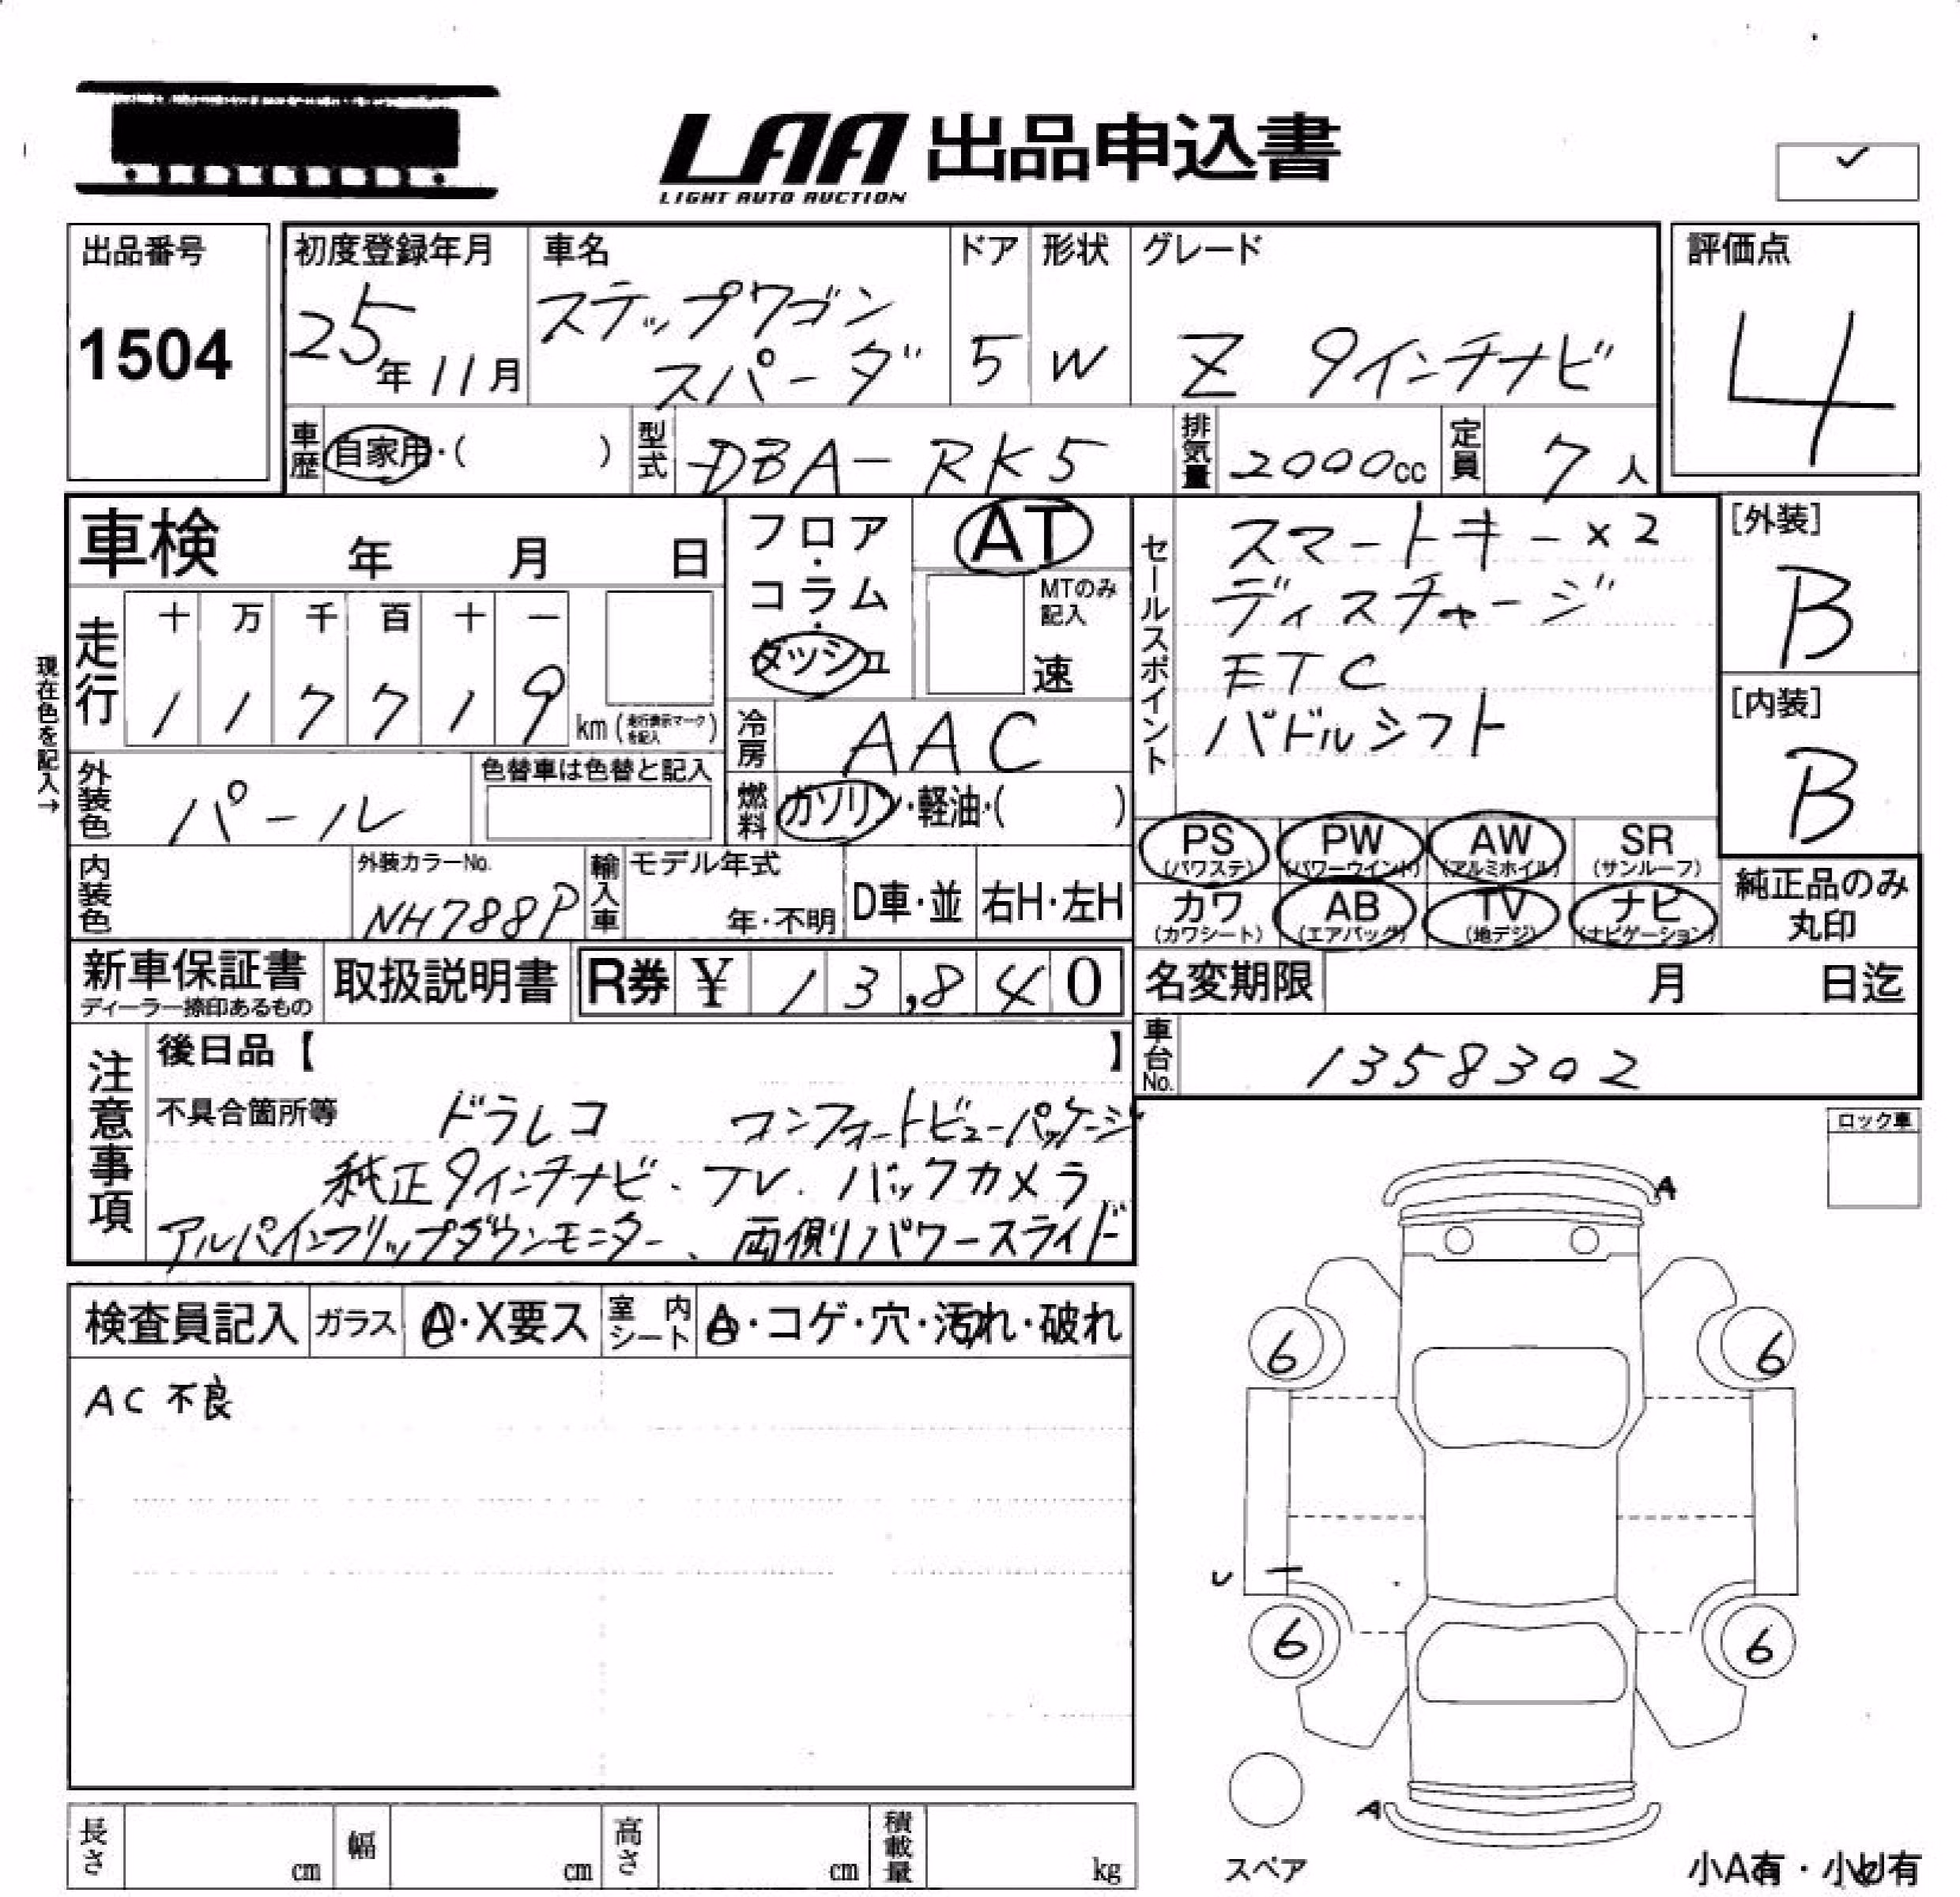 LAA 出品申込書
LIGHT AUTO AUCTION
出品番号
1504
初度登録年月
25年11月
車名
ステップワゴン
スパーダ
ドア
5
形状
W
グレード
Z 9インチナビ
評価点
4
車歴 自家用・( )
型式 DBA-RK5
排気量 2000cc
定員 7人
車検 年 月 日
フロア・コラム・ダッシュ
AT
MTのみ記入
速
セールスポイント
スマートキー×2
ディスチャージ
ETC
パドルシフト
[外装]
B
[内装]
B
現在色を記入→
走行
十 万 千 百 十 一
1 1 7 7 1 9 km (走行表示マークを記入)
冷房 AAC
外装色 パール
色替車は色替と記入
燃料 ガソリン・軽油・( )
PS (パワステ) PW (パワーウインド) AW (アルミホイル) SR (サンルーフ)
カワ (カワシート) AB (エアバッグ) TV (地デジ) ナビ (ナビゲーション)
純正品のみ
丸印
内装色
外装カラーNo.
NH788P
輸入車 モデル年式
年・不明
D車・並 右H・左H
新車保証書
ディーラー捺印あるもの
取扱説明書
R券 ¥ 13,840
名変期限 月 日迄
車台No. 1358302
注意事項
後日品【 】
不具合箇所等 ドラレコ コンフォートビューパッケージ
純正9インチナビ、TV、バックカメラ
アルパインフリップダウンモニター、両側パワースライド
ロック車
検査員記入 ガラス A・X要ス 室内シート A・コゲ・穴・汚れ・破れ
AC不良
A
6 6
U
6 6
A
スペア
小A有・小U有
長さ cm 幅 cm 高さ cm 積載量 kg